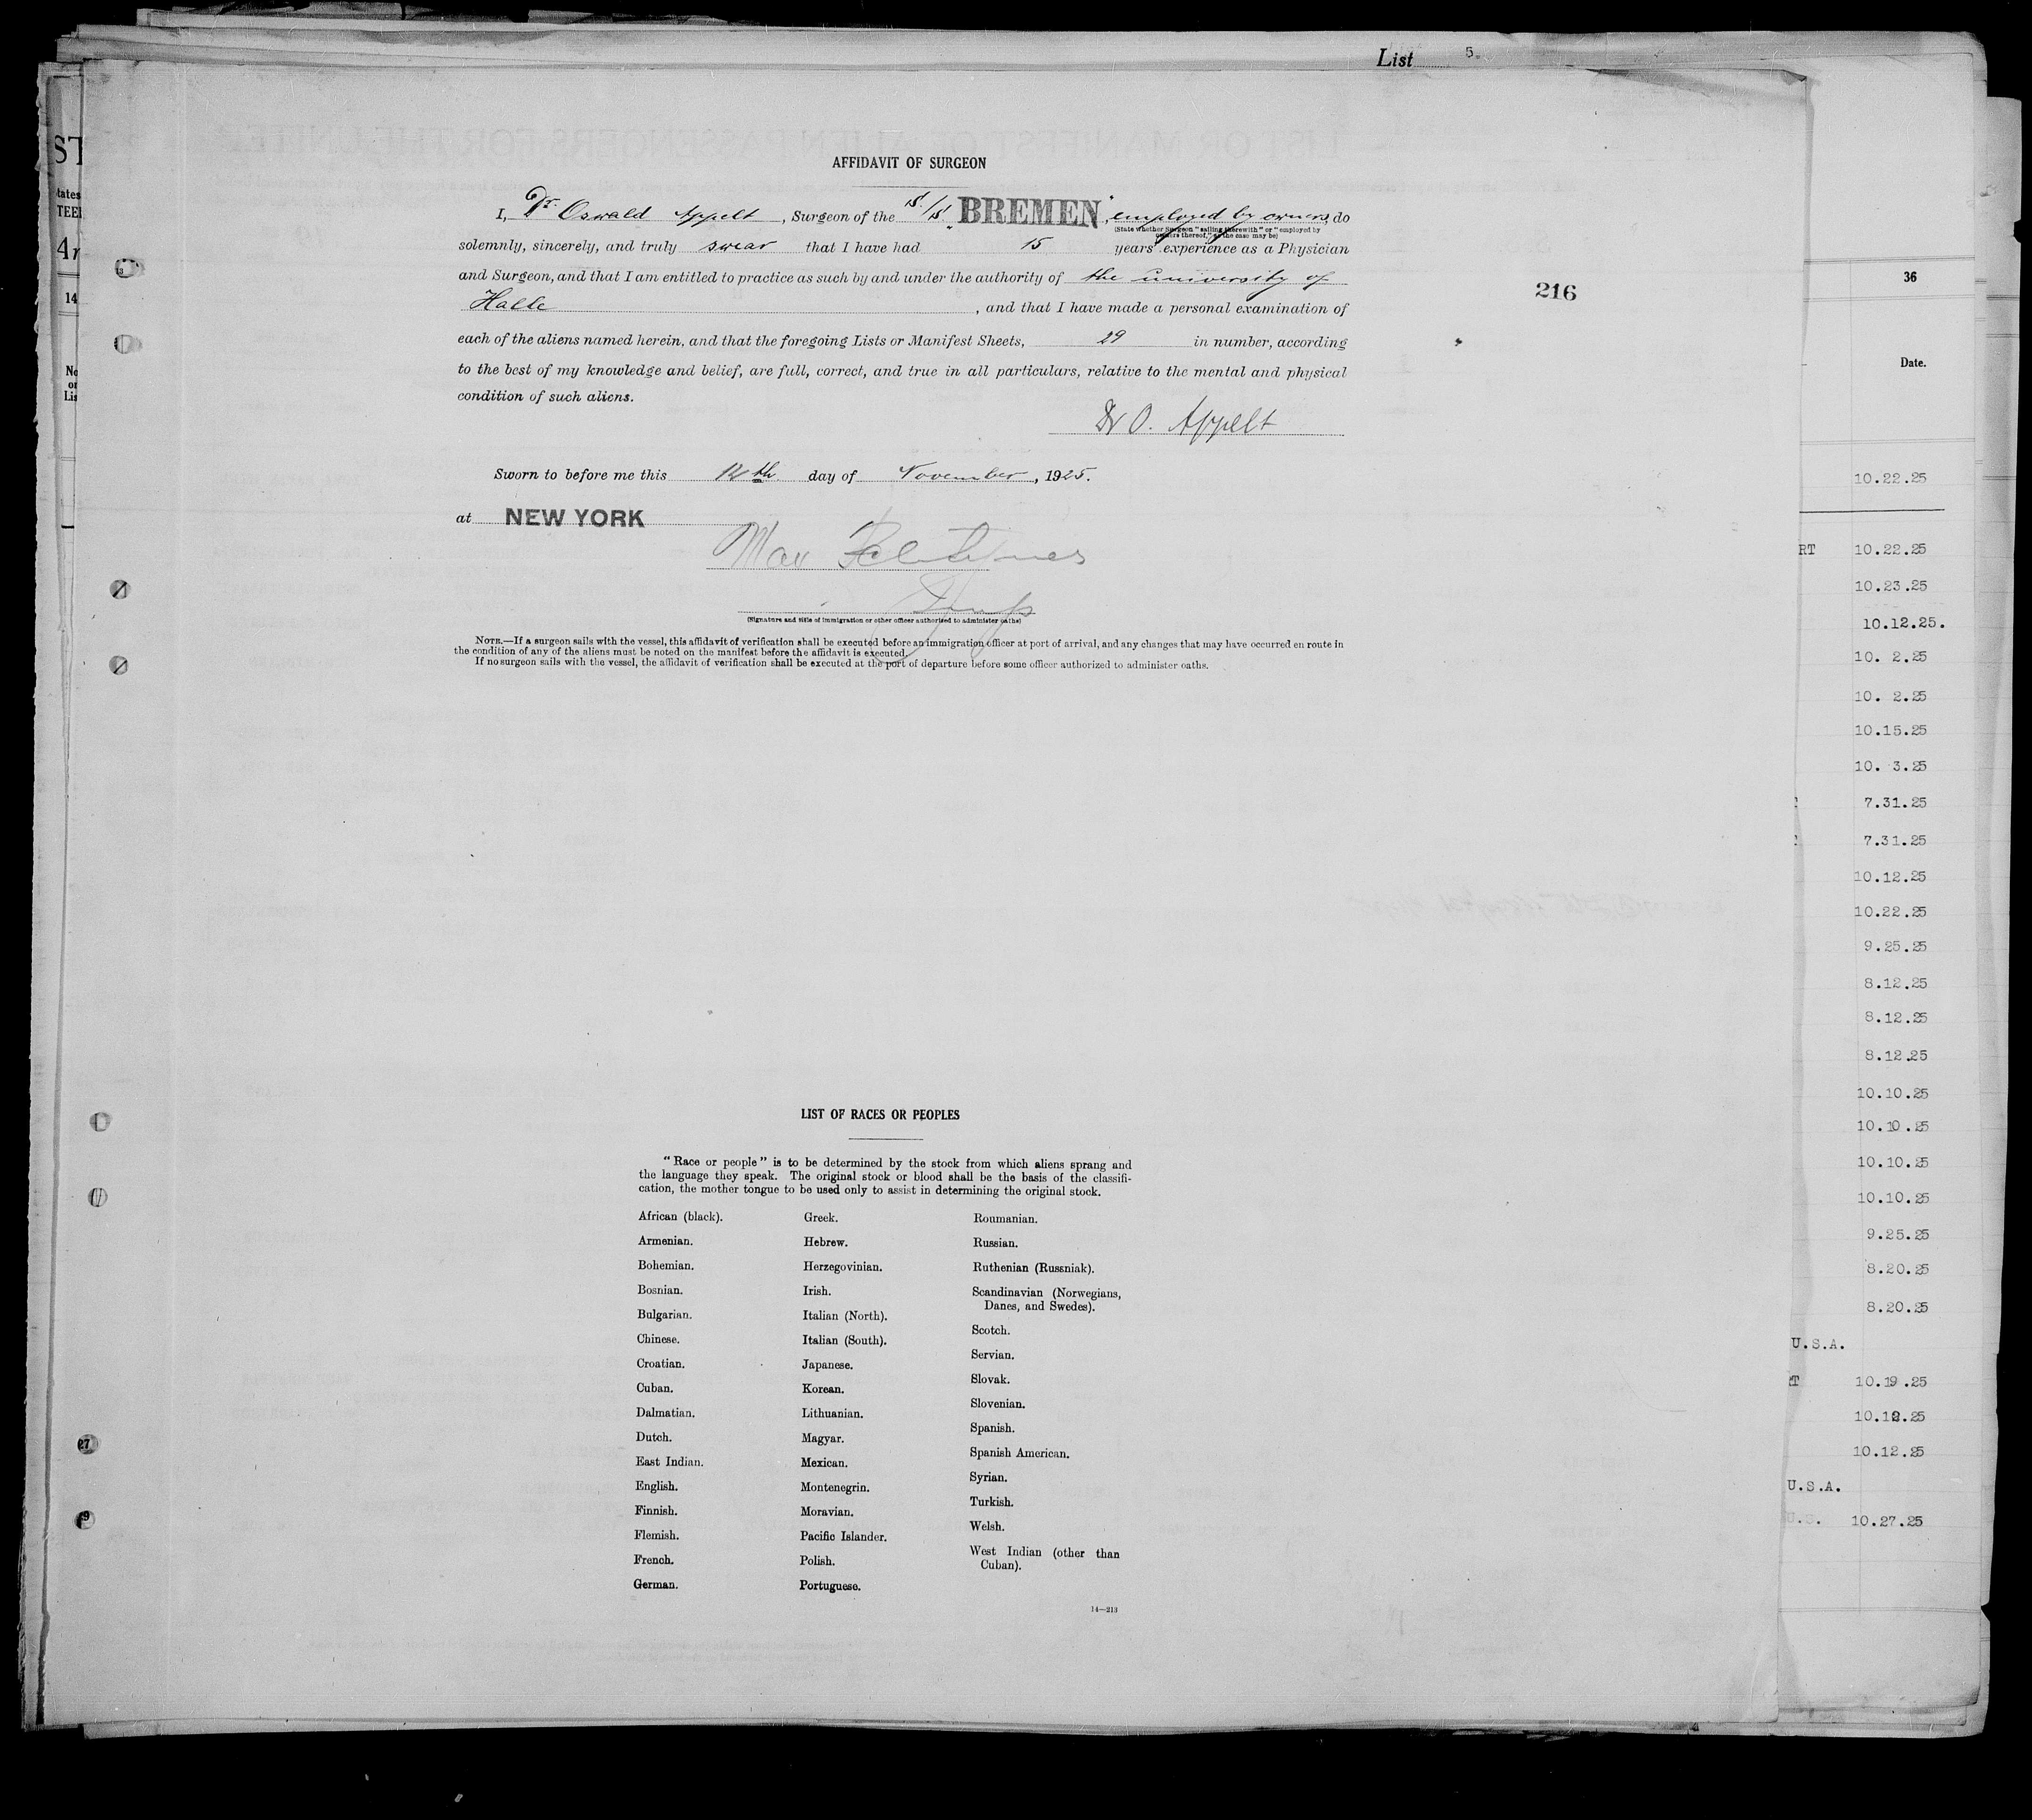 List 5.
ST
tates
TEE
Ar
14
No
on
Lis
AFFIDAVIT OF SURGEON
I, Dr. Oswald Appelt, Surgeon of the S/S "BREMEN", employed by owners, do
(State whether Surgeon "sailing therewith" or "employed by
owners thereof," as the case may be)
solemnly, sincerely, and truly swear that I have had 15 years' experience as a Physician
and Surgeon, and that I am entitled to practice as such by and under the authority of the university of
Halle, and that I have made a personal examination of
each of the aliens named herein, and that the foregoing Lists or Manifest Sheets, 29 in number, according
to the best of my knowledge and belief, are full, correct, and true in all particulars, relative to the mental and physical
condition of such aliens.
Dr O. Appelt
Sworn to before me this 12th day of November, 1925.
at NEW YORK
Max
(Signature and title of immigration or other officer authorized to administer oaths)
NOTE.—If a surgeon sails with the vessel, this affidavit of verification shall be executed before an immigration officer at port of arrival, and any changes that may have occurred en route in
the condition of any of the aliens must be noted on the manifest before the affidavit is executed.
If no surgeon sails with the vessel, the affidavit of verification shall be executed at the port of departure before some officer authorized to administer oaths.
216
LIST OF RACES OR PEOPLES
"Race or people" is to be determined by the stock from which aliens sprang and
the language they speak. The original stock or blood shall be the basis of the classifi-
cation, the mother tongue to be used only to assist in determining the original stock.
African (black).
Armenian.
Bohemian.
Bosnian.
Bulgarian.
Chinese.
Croatian.
Cuban.
Dalmatian.
Dutch.
East Indian.
English.
Finnish.
Flemish.
French.
German.
Greek.
Hebrew.
Herzegovinian.
Irish.
Italian (North).
Italian (South).
Japanese.
Korean.
Lithuanian.
Magyar.
Mexican.
Montenegrin.
Moravian.
Pacific Islander.
Polish.
Portuguese.
Roumanian.
Russian.
Ruthenian (Russniak).
Scandinavian (Norwegians,
Danes, and Swedes).
Scotch.
Servian.
Slovak.
Slovenian.
Spanish.
Spanish American.
Syrian.
Turkish.
Welsh.
West Indian (other than
Cuban).
14—213
36
Date.
10.22.25
RT 10.22.25
10.23.25
10.12.25.
10. 2.25
10. 2.25
10.15.25
10. 3.25
7.31.25
7.31.25
10.12.25
10.22.25
9.25.25
8.12.25
8.12.25
8.12.25
10.10.25
10.10.25
10.10.25
10.10.25
9.25.25
8.20.25
8.20.25
U.S.A.
RT 10.19.25
10.12.25
10.12.25
U.S.A.
U.S. 10.27.25